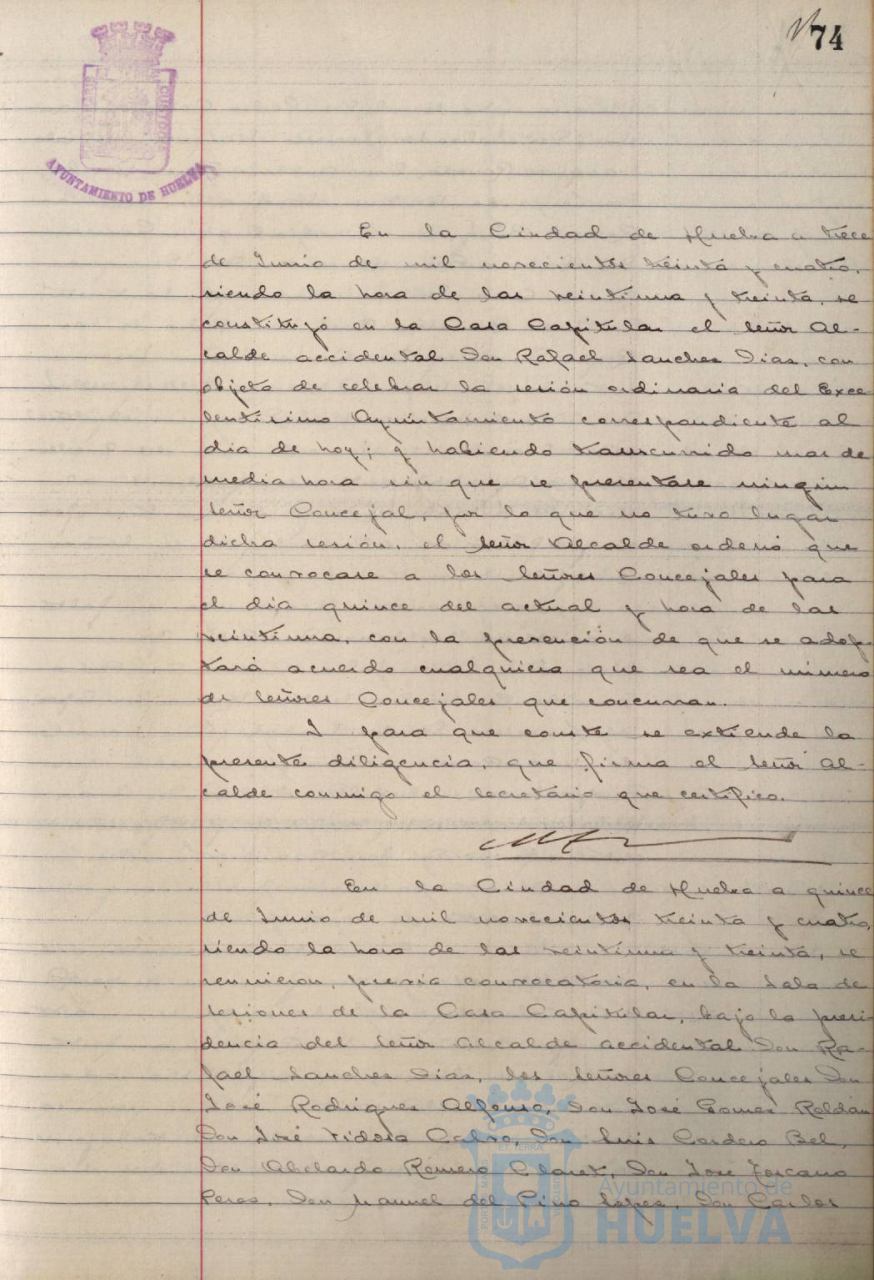 74
AYUNTAMIENTO DE HUELVA
En la Ciudad de Huelva a trece
de Junio de mil novecientos treinta y cuatro,
siendo la hora de las veintiuna y treinta, se
constituyó en la Casa Capitular el Señor Al-
calde accidental Don Rafael Sanchez Diaz, con
objeto de celebrar la sesión ordinaria del Exce
lentisimo Ayuntamiento correspondiente al
dia de hoy; y habiendo transcurrido mas de
media hora sin que se presentase ningún
Señor Concejal, por lo que no tuvo lugar
dicha sesión, el Señor Alcalde ordenó que
se convocase a los Señores Concejales para
el dia quince del actual y hora de las
veintiuna, con la prevención de que se adop
tará acuerdo cualquiera que sea el número
de Señores Concejales que concurran.
Y para que conste se extiende la
presente diligencia, que firma el Señor Al-
calde conmigo el Secretario que certifico.
En la Ciudad de Huelva a quince
de Junio de mil novecientos treinta y cuatro,
siendo la hora de las veintiuna y treinta, se
reunieron, previa convocatoria, en la Sala de
Sesiones de la Casa Capitular, bajo la presi-
dencia del Señor Alcalde accidental Don Ra-
fael Sanchez Diaz, los Señores Concejales Don
José Rodriguez Alfonso, Don José Gomez Roldán
Don José Vidosa Calvo, Don Luis Cordero Bel,
Don Abelardo Romero Claret, Don José Toscano
Perez, Don Manuel del Pino Lopez, Don Carlos
Ayuntamiento de
HUELVA